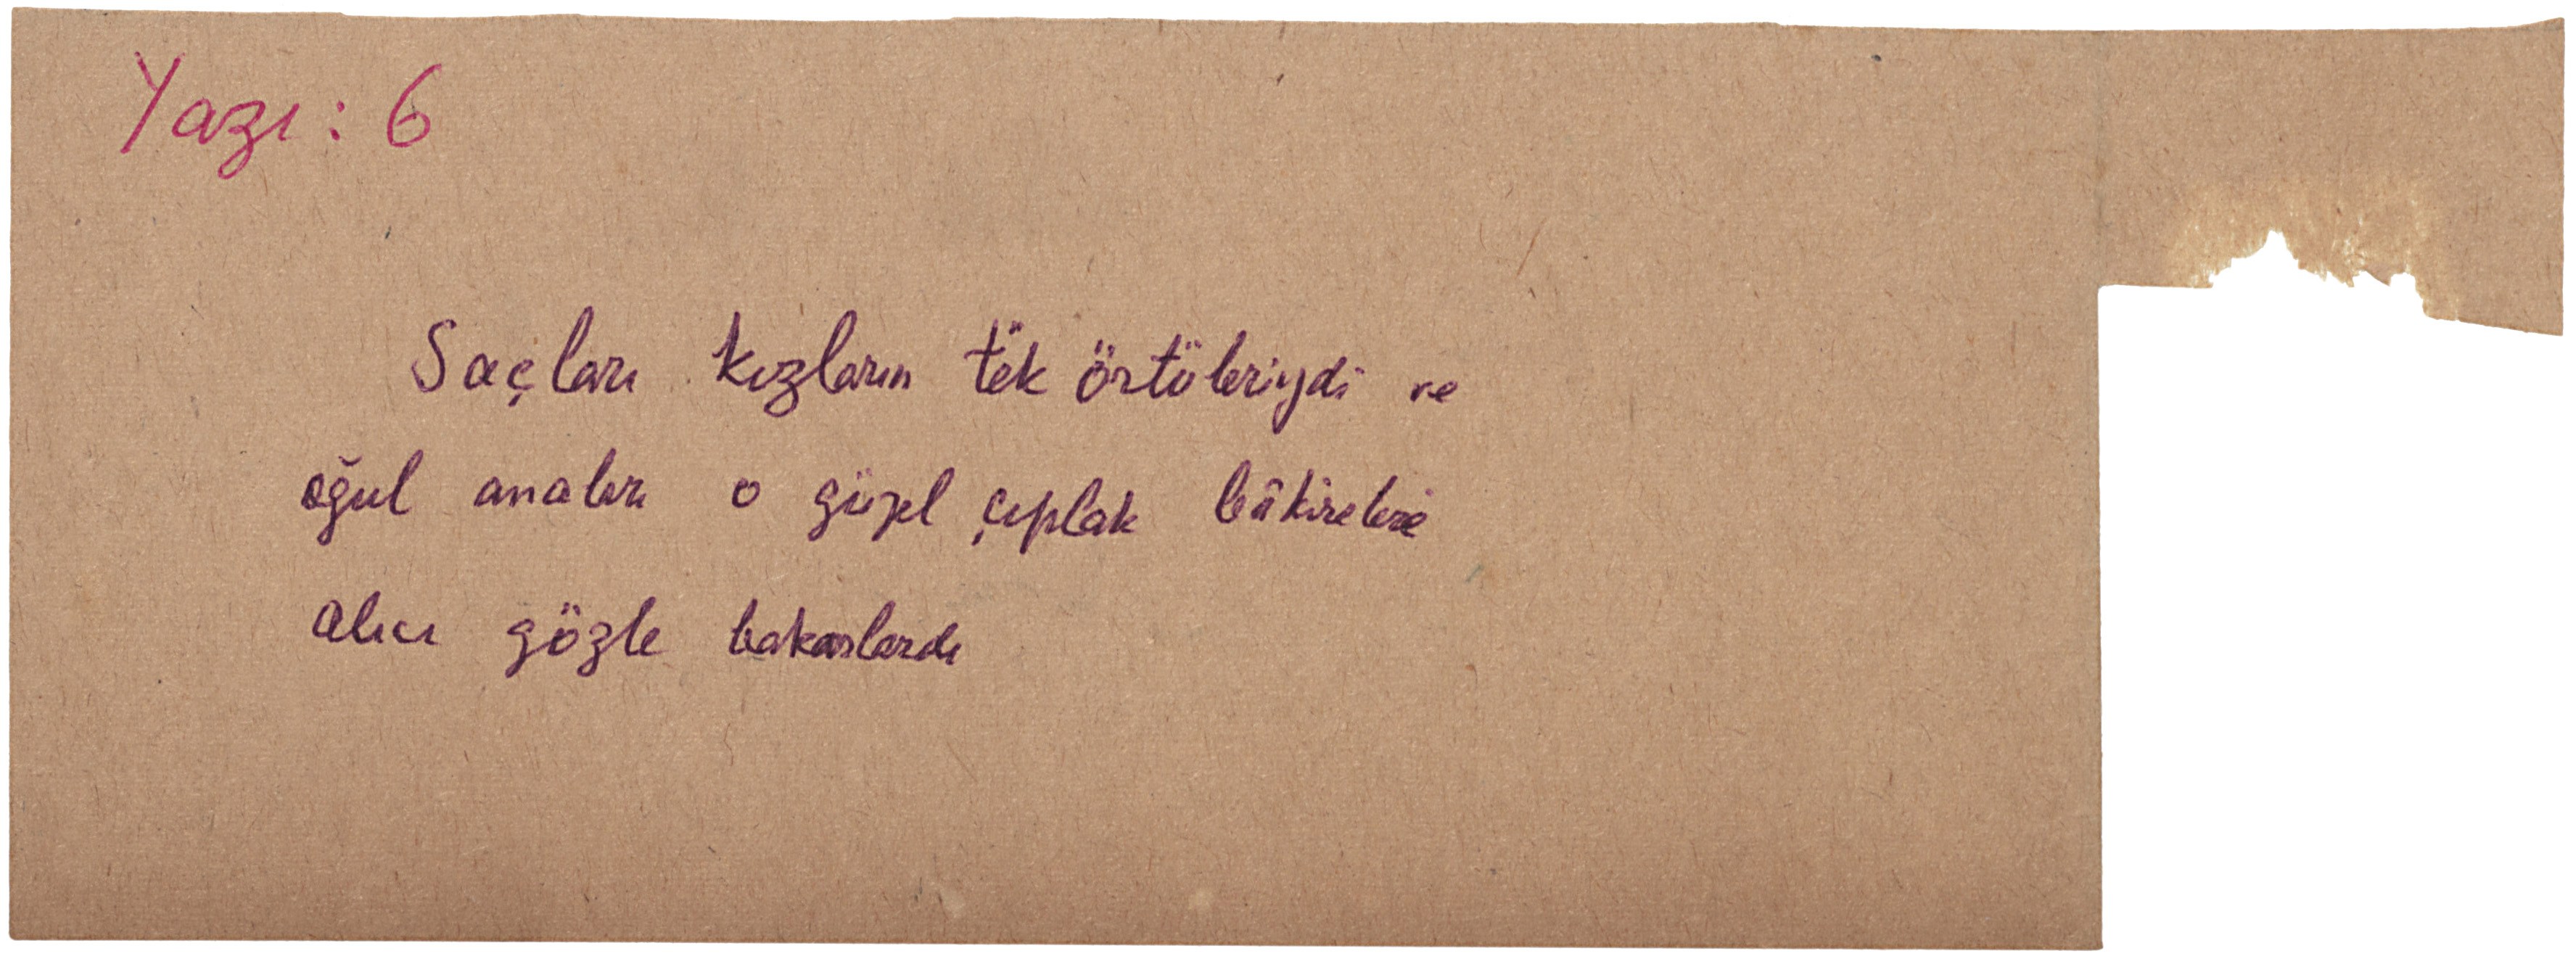 Yazı: 6
Saçları kızların tek örtüleriydi ve
oğul anaları o güzel çıplak bâkirelere
alıcı gözle bakarlardı